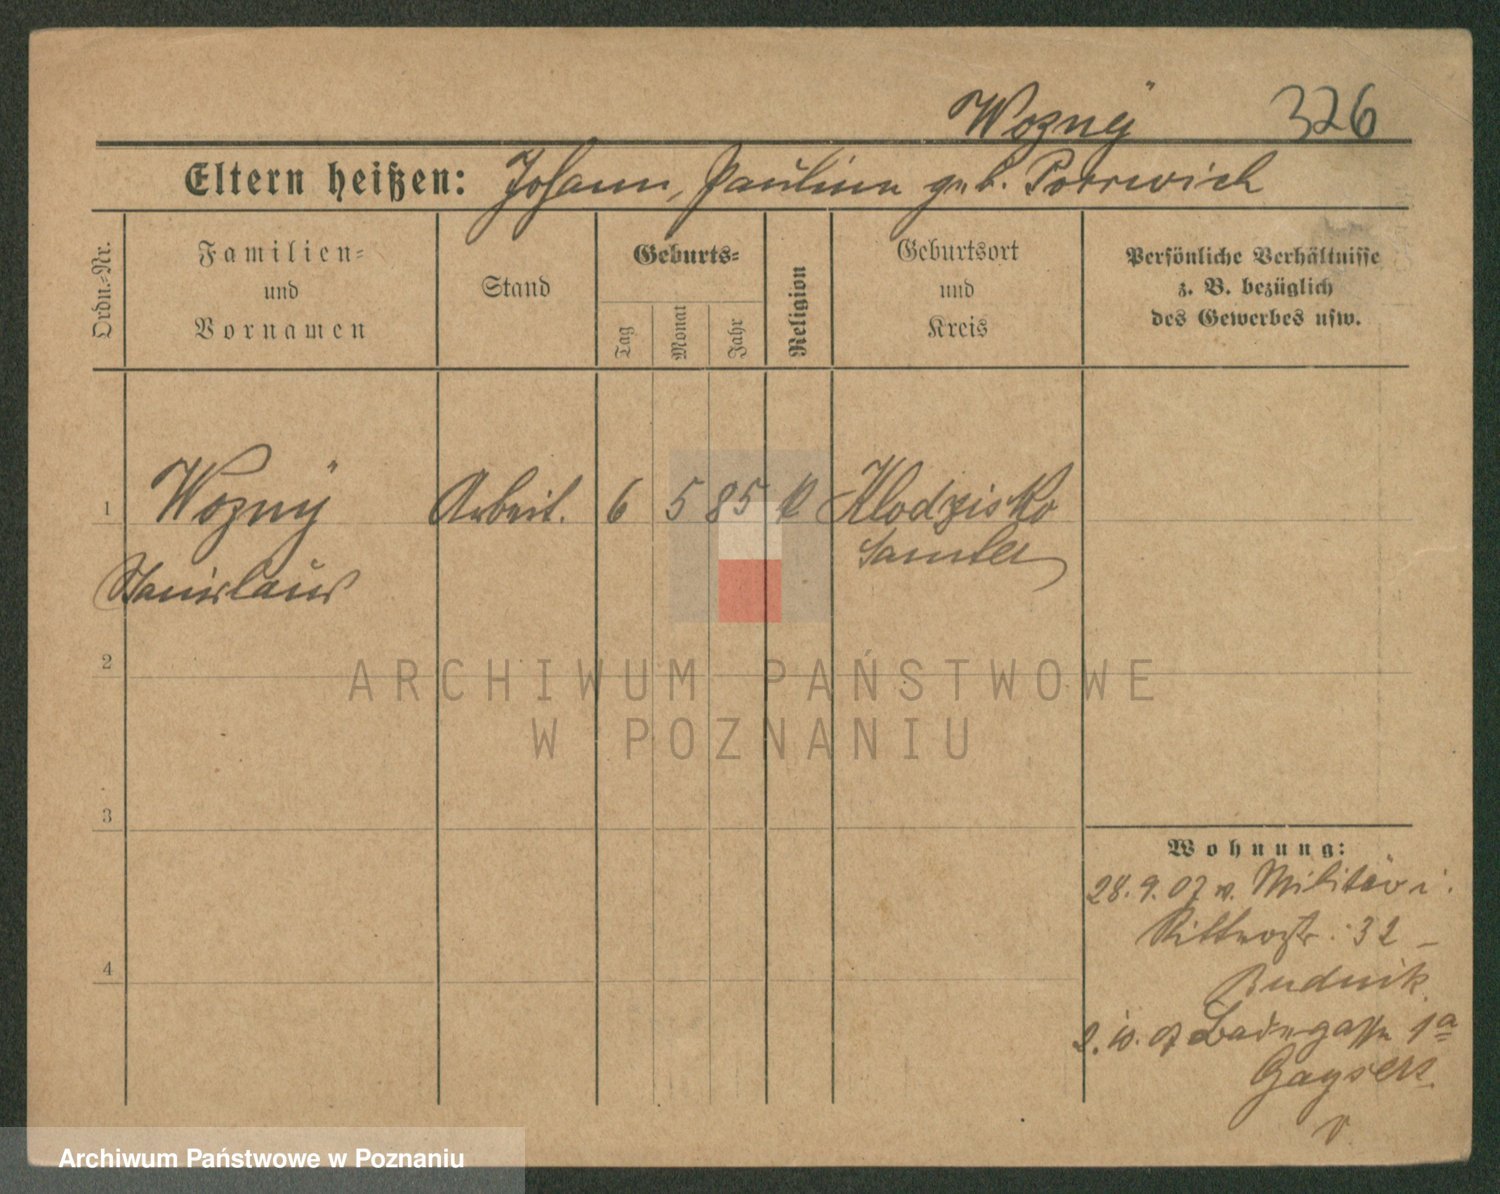 Woznÿ 326
Eltern heißen: Johann, Paulina geb. Porrwich
Ordn.-Nr.
Familien-
und
Vornamen
Stand
Geburts-
Tag
Monat
Jahr
Religion
Geburtsort
und
Kreis
Persönliche Verhältnisse
z. B. bezüglich
des Gewerbes usw.
1 Woznÿ Arbeit. 6 5 85 k Klodzisko
Samter
Stanislaus
2
ARCHIWUM PAŃSTWOWE
W POZNANIU
3
Wohnung:
28.9.07 v. Militär i.
Ritterstr. 32 –
Budnik
4
2.10.07 Badegasse 1a
Archiwum Państwowe w Poznaniu